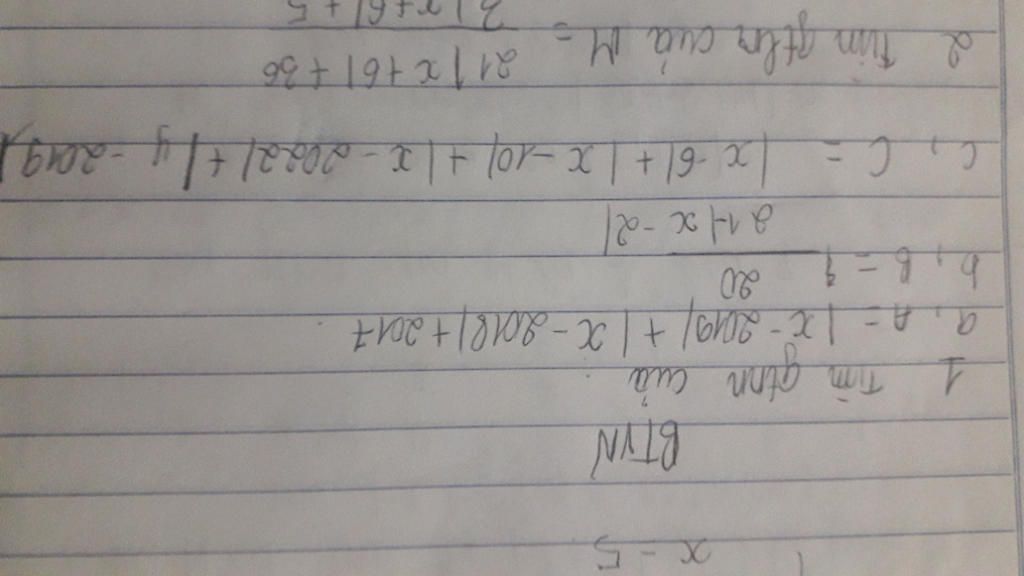 x - 5
BTVN
1 Tìm gtnn của :
a, A = |x - 2019| + |x - 2018| + 2017
20
b, B =
2 + |x - 2|
c, C = |x - 6| + |x - 10| + |x - 2022| + |y - 2019|
21|x + 6| + 36
2 Tìm gtln của M =
3|x + 6| + 5